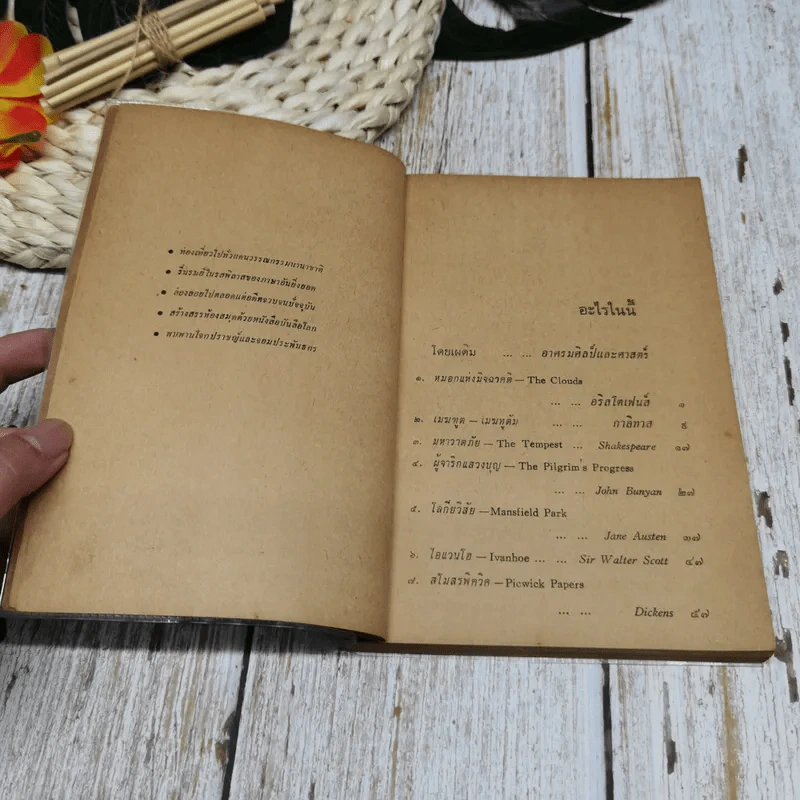 ● ท่องเที่ยวไปทั่วแดนวรรณกรรมนานาชาติ
● รื่นรมย์ในรสพิลาสของภาษาอันยิ่งยอด
● ล่องลอยไปตลอดแต่อดีตจวบจนปัจจุบัน
● สร้างสรรห้องสมุดด้วยหนังสือบันลือโลก
● พบพานโจกปราชญ์และจอมประพันธกร
อะไรในนี้
โดยเผดิม ... ... อาศรมศิลป์และศาสตร์
๑. หมอกแห่งมิจฉาคติ — The Clouds
... ... อริสโตเฟนส์ ๑
๒. เมฆฑูต — เมฆทูตัม ... ... กาลิทาส ๙
๓. มหาวาตภัย — The Tempest ... Shakespeare ๑๗
๔. ผู้จาริกแสวงบุญ — The Pilgrim's Progress
... ... John Bunyan ๒๗
๕. โลกียวิสัย — Mansfield Park
... ... Jane Austen ๓๗
๖. ไอแวนโฮ — Ivanhoe ... ... Sir Walter Scott ๔๗
๗. สโมสรพิควิค — Picwick Papers
... ... Dickens ๕๗